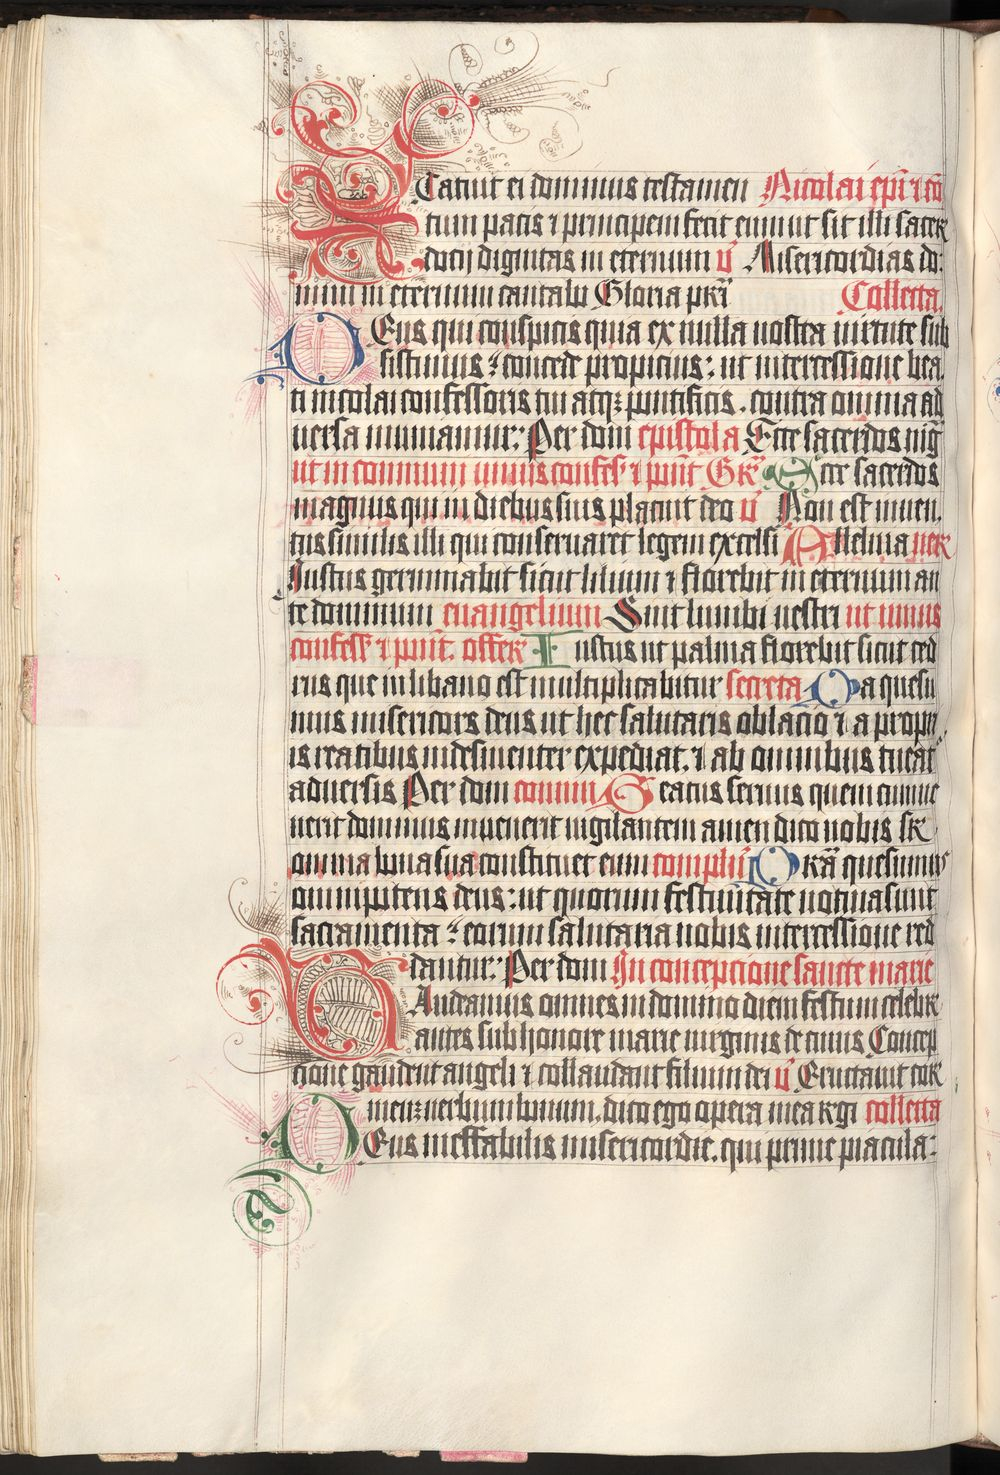 Tatuit ei dominus testamen Nicolai epi ⁊ co
tum pacis ⁊ principem fecit eum ut sit illi sacer
docij dignitas in eternum v̄ Misericordias do:
mini in eternum cantabo Gloria pr̄i Collecta.
Eus qui conspicis quia ex nulla nostra uirtute sub
sistimus : concede propicius : ut intercessione bea
ti nicolai confessoris tui atq; pontificis . contra omnia ad
uersa muniamur : Per dom̄ epistola Ecce sacerdos mg̅
ut in communi unius confes̄ ⁊ pont̄ Gr̄ Ecce sacerdos
magnus qui in diebus suis placuit deo v̄ Non est inuen.
tus similis illi qui conseruaret legem excelsi Alleluia uer̄
Iustus germinabit sicut lilium ⁊ florebit in eternum an
te dominum euangelium Sint lumbi uestri ut unius
confess̄ ⁊ pont̄. offer̄ Iustus ut palma florebit sicut ced
rus que in libano est multiplicabitur secreta Da quesu
mus misericors deus ut hec salutaris oblacio ⁊ a propri
is reatibus indesinenter expediat. ⁊ ab omnibus tueat̄
aduersis Per dom̄ co̅mun̄ Beatus seruus quem cumue
nerit dominus inuenerit uigilantem amen dico uobis sr̄
omnia bona sua constituet eum complen̄ Pr̄a quesumus
omnipotens deus : ut quorum festiuitate uotiua sunt
sacramenta : eorum salutaria nobis intercessione red
dantur : Per dom̄ In concepcione sancte marie
Audeamus omnes in domino diem festum celebr̄
antes sub honore marie uirginis de cuius Concep
cione gaudent angeli ⁊ collaudant filium dei v̄ Eructauit cor̄
meum uerbum bonum. dico ego opera mea regi collecta
Eus ineffabilis misericordie. qui prime piacula :